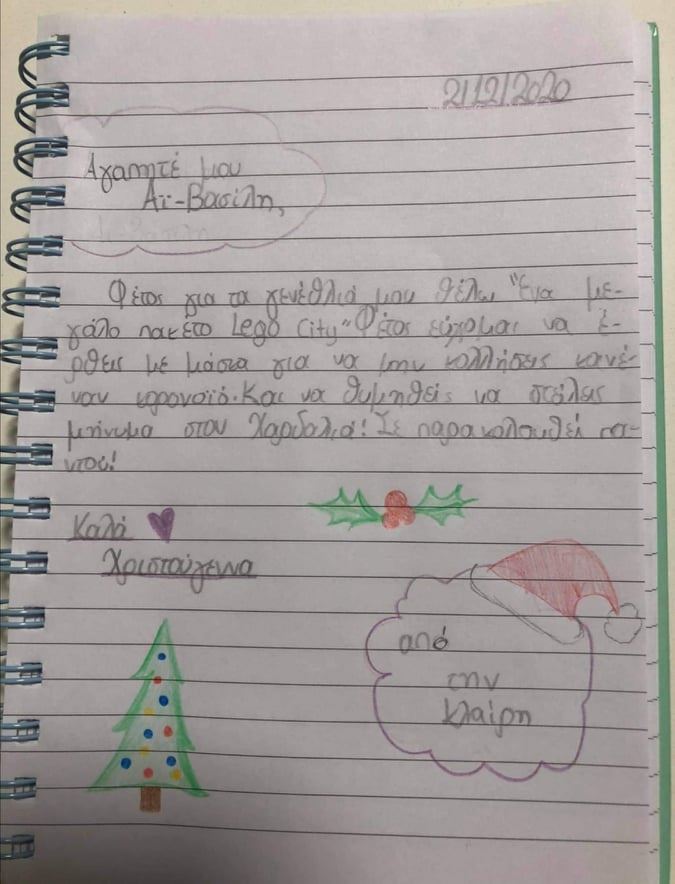 21/12/2020
Αγαπητέ μου
Αϊ-Βασίλη,
Φέτος για τα γενέθλιά μου θέλω "Ένα με-
γάλο πακέτο Lego City" Φέτος εύχομαι να έ-
ρθεις με μάσκα για να μην κολλήσεις κανέ-
ναν κορονοϊό. Και να θυμηθείς να στείλεις
μήνυμα στον Χαρδαλιά! Σε παρακολουθεί πα-
ντού!
Καλά
Χριστούγεννα
από
την
Κλαίρη